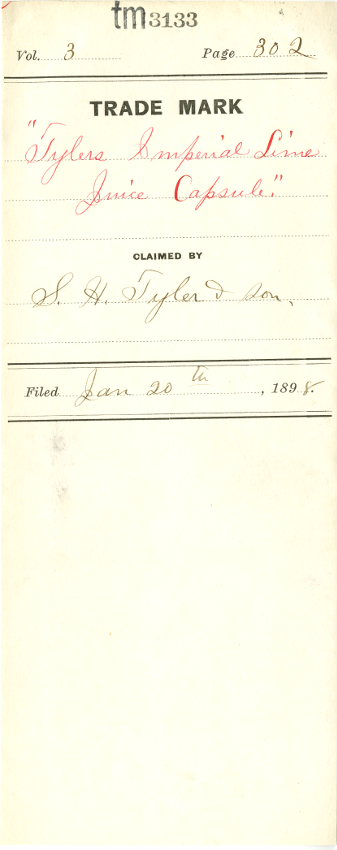 tm3133
Vol. 3 Page 302
TRADE MARK
"Tylers Imperial Lime
Juice Capsule."
CLAIMED BY
S. H. Tyler & Son.
Filed Jan 20th, 1898.